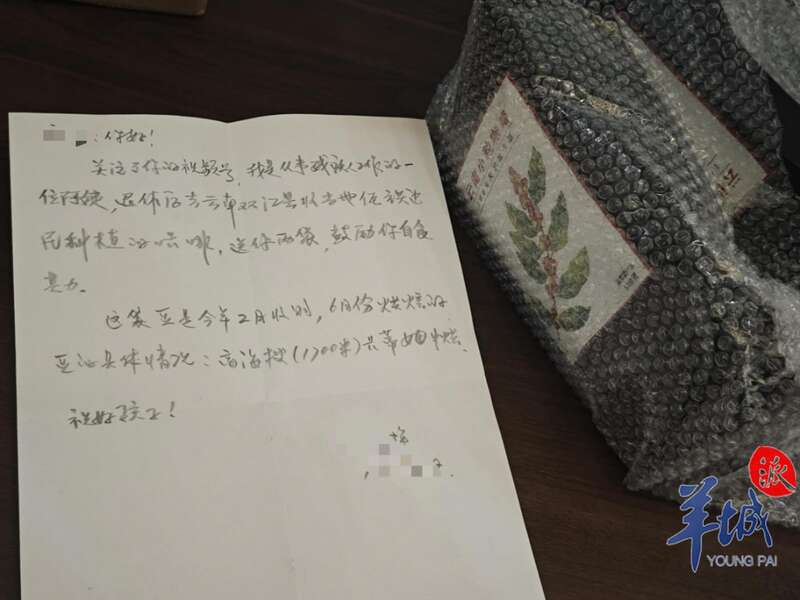 ：你好！
关注了你的视频号，我是从事残联工作的一
位阿姨，退休后去云南双江县收当地佤族边
民种植的咖啡，送你两袋，鼓励你自食
其力。
这袋豆是今年2月收的，6月份烘焙的
豆的具体情况：高海拔（1700米）
祝好孩子！
云南小粒咖啡
羊城派
YOUNG PAI